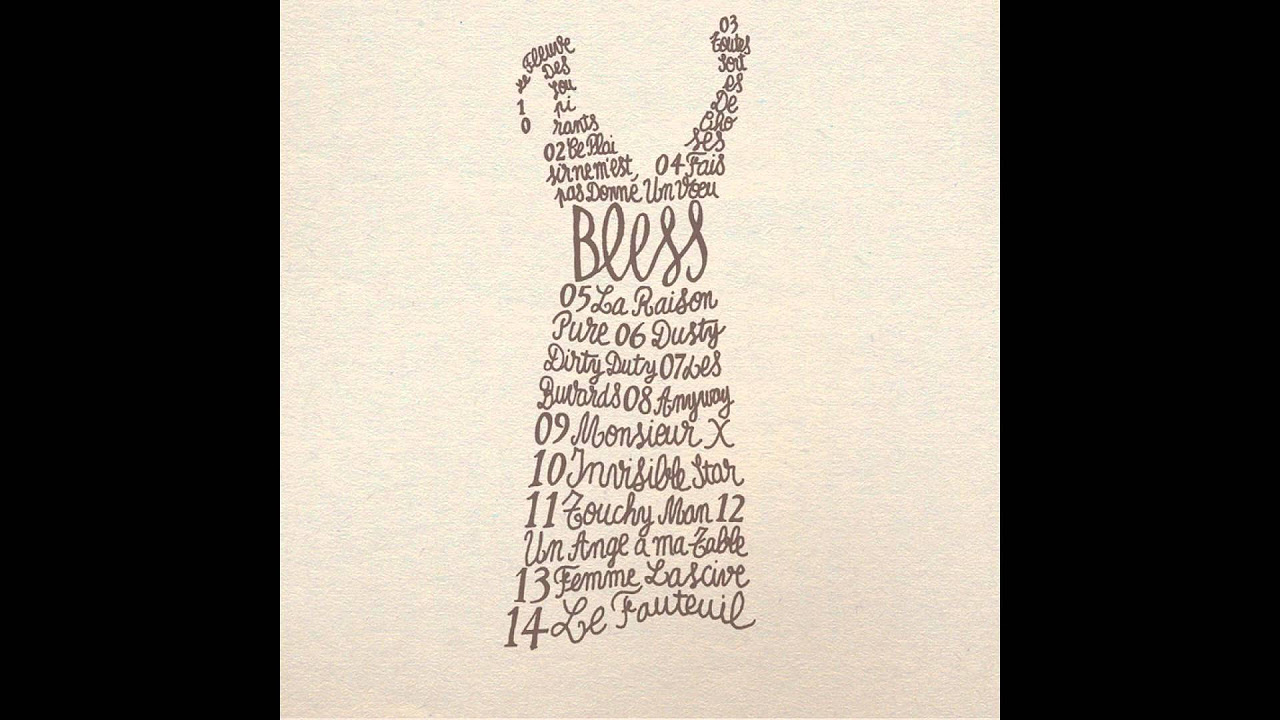 0
1
Le
Fleuve
Des
sou
pi
rants
02 Le Plai
sir ne m'est
pas Donné
03
Toutes
Sort
es
De
Cho
ses
04 Fais
Un Vœu
Bless
05 La Raison
Pure 06 Dusty
Dirty Duty 07 Les
Buvards 08 Anyway
09 Monsieur X
10 Invisible Star
11 Touchy Man 12
Un Ange à ma Table
13 Femme Lascive
14 Le Fauteuil